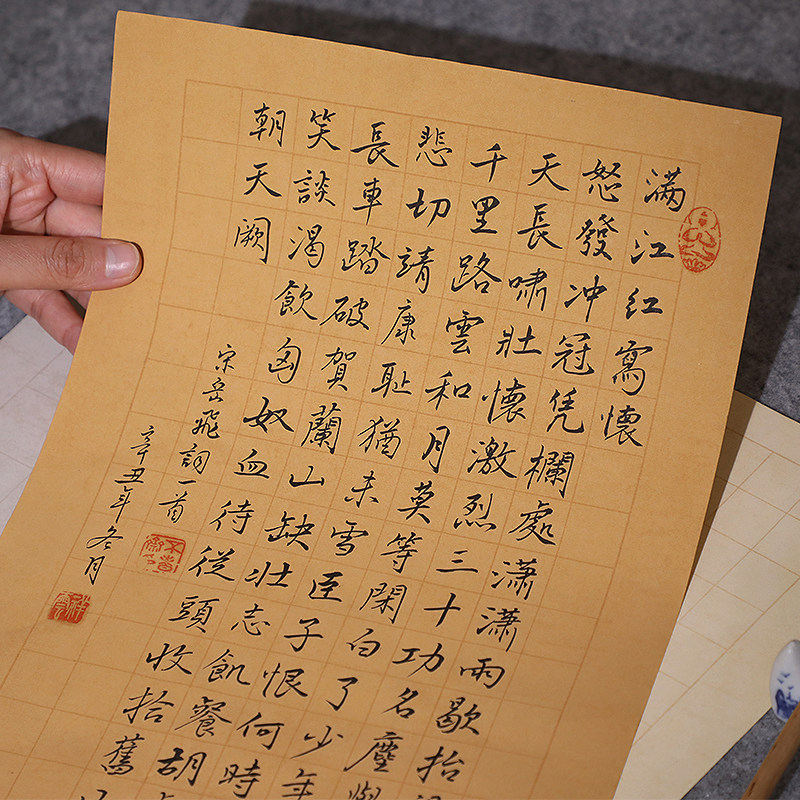 滿江红寫懷
怒發冲冠凭欄處瀟瀟雨歇抬
天長嘯壯懷激烈三十功名塵與
千里路雲和月莫等閑白了少年
悲切靖康耻猶未雪臣子恨何時
長車踏破賀蘭山缺壮志飢餐胡
笑談渴飲匈奴血待從頭收拾舊
朝天闕
宋岳飛詞一首
辛丑年冬月